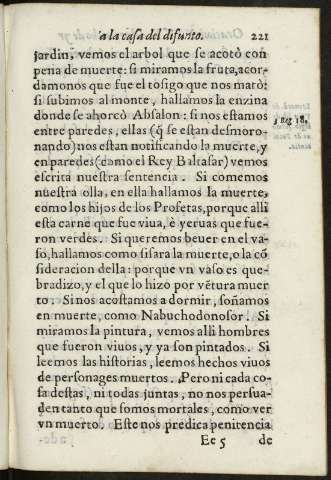 a la casa del difunto. 221
jardin, vemos el arbol que se acotò con
pena de muerte: si miramos la fruta, acor-
damonos que fue el tosigo que nos matò:
si subimos al monte, hallamos la enzina
donde se ahorcò Absalon: si nos estamos
entre paredes, ellas (q̃ se estan desmoro-
nando) nos estan notificando la muerte, y
en paredes (como el Rey Baltasar) vemos
escrita nuestra sentencia. Si comemos
nuestra olla, en ella hallamos la muerte,
como los hijos de los Profetas, porque alli
esta carne que fue viua, è yeruas que fue-
ron verdes. Si queremos beuer en el va-
so, hallamos como Sisara la muerte, o la cõ
sideracion della: porque vn vaso es que-
bradizo, y el que lo hizo por vẽtura muer
to. Si nos acostamos a dormir, soñamos
en muerte, como Nabuchodonosor. Si
miramos la pintura, vemos alli hombres
que fueron viuos, y ya son pintados. Si
leemos las historias, leemos hechos viuos
de personages muertos. Pero ni cada co-
sa destas, ni todas juntas, no nos persua-
den tanto que somos mortales, como ver
vn muerto. Este nos predica penitencia
Ee 5 de